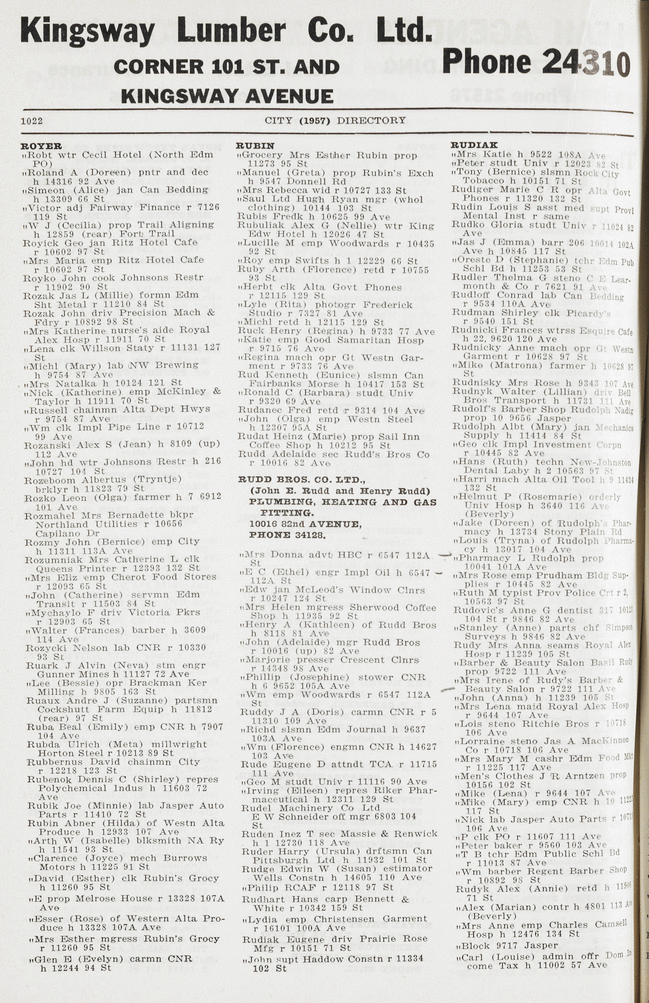 Kingsway Lumber Co. Ltd.
CORNER 101 ST. AND
KINGSWAY AVENUE
Phone 24310
1022
CITY (1957) DIRECTORY
ROYER
"Robt wtr Cecil Hotel (North Edm
PO)
"Roland A (Doreen) pntr and dec
h 14316 92 Ave
"Simeon (Alice) jan Can Bedding
h 13309 66 St
"Victor adj Fairway Finance r 7126
119 St
"W J (Cecilia) prop Trail Aligning
h 12859 (rear) Fort Trail
Royick Geo jan Ritz Hotel Cafe
r 10602 97 St
"Mrs Maria emp Ritz Hotel Cafe
r 10602 97 St
Royko John cook Johnsons Restr
r 11902 90 St
Rozak Jas L (Millie) formn Edm
Sht Metal r 11210 84 St
Rozak John driv Precision Mach &
Fdry r 10892 98 St
"Mrs Katherine nurse's aide Royal
Alex Hosp r 11911 70 St
"Lena clk Willson Staty r 11131 127
St
"Michl (Mary) lab NW Brewing
h 9754 87 Ave
"Mrs Natalka h 10124 121 St
"Nick (Katherine) emp McKinley &
Taylor h 11911 70 St
"Russell chainmn Alta Dept Hwys
r 9754 87 Ave
"Wm clk Impl Pipe Line r 10712
99 Ave
Rozanski Alex S (Jean) h 8109 (up)
112 Ave
"John hd wtr Johnsons Restr h 216
10727 104 St
Rozeboom Albertus (Tryntje)
brklyr h 11823 79 St
Rozko Leon (Olga) farmer h 7 6912
101 Ave
Rozmahel Mrs Bernadette bkpr
Northland Utilities r 10656
Capilano Dr
Rozmy John (Bernice) emp City
h 11311 113A Ave
Rozumniak Mrs Catherine L clk
Queens Printer r 12393 132 St
"Mrs Eliz emp Cherot Food Stores
r 12093 65 St
"John (Catherine) servmn Edm
Transit r 11503 84 St
"Mychaylo F driv Victoria Pkrs
r 12903 65 St
"Walter (Frances) barber h 3609
114 Ave
Rozycki Nelson lab CNR r 10330
93 St
Ruark J Alvin (Neva) stm engr
Gunner Mines h 11127 72 Ave
"Lee (Bessie) opr Brackman Ker
Milling h 9805 163 St
Ruaux Andre J (Suzanne) partsmn
Cockshutt Farm Equip h 11812
(rear) 97 St
Ruba Beal (Emily) emp CNR h 7907
104 Ave
Rubda Ulrich (Meta) millwright
Horton Steel r 10213 89 St
Rubbernus David chainmn City
r 12218 123 St
Rubenok Dennis C (Shirley) repres
Polychemical Indus h 11603 72
Ave
Rubik Joe (Minnie) lab Jasper Auto
Parts r 11410 72 St
Rubin Abner (Hilda) of Westn Alta
Produce h 12933 107 Ave
"Arth W (Isabelle) blksmth NA Ry
h 11541 93 St
"Clarence (Joyce) mech Burrows
Motors h 11225 91 St
"David (Esther) clk Rubin's Grocy
h 11260 95 St
"E prop Melrose House r 13328 107A
Ave
"Esser (Rose) of Western Alta Pro-
duce h 13328 107A Ave
"Mrs Esther mgress Rubin's Grocy
r 11260 95 St
"Glen E (Evelyn) carmn CNR
h 12244 94 St
RUBIN
"Grocery Mrs Esther Rubin prop
11273 95 St
"Manuel (Greta) prop Rubin's Exch
h 9547 Donnell Rd
"Mrs Rebecca wid r 10727 133 St
"Saul Ltd Hugh Ryan mgr (whol
clothing) 10144 103 St
Rubis Fredk h 10625 99 Ave
Rubuliak Alex G (Nellie) wtr King
Edw Hotel h 12026 47 St
"Lucille M emp Woodwards r 10435
92 St
"Roy emp Swifts h 1 12229 66 St
Ruby Arth (Florence) retd r 10755
93 St
"Herbt clk Alta Govt Phones
r 12115 129 St
"Lyle (Rita) photogr Frederick
Studio r 7327 81 Ave
"Michl retd h 12115 129 St
Ruck Henry (Regina) h 9733 77 Ave
"Katie emp Good Samaritan Hosp
r 9715 76 Ave
"Regina mach opr Gt Westn Gar-
ment r 9733 76 Ave
Rud Kenneth (Eunice) slsmn Can
Fairbanks Morse h 10417 153 St
"Ronald C (Barbara) studt Univ
r 9320 69 Ave
Rudanec Fred retd r 9314 104 Ave
"John (Olga) emp Westn Steel
h 12307 95A St
Rudat Heinz (Marie) prop Sail Inn
Coffee Shop h 10212 95 St
Rudd Adelaide sec Rudd's Bros Co
r 10016 82 Ave
RUDD BROS. CO. LTD.,
(John E. Rudd and Henry Rudd)
PLUMBING, HEATING AND GAS
FITTING.
10016 82nd AVENUE,
PHONE 34128.
"Mrs Donna advt HBC r 6547 112A
St
"E C (Ethel) engr Impl Oil h 6547
112A St
"Edw jan McLeod's Window Clnrs
r 10247 124 St
"Mrs Helen mgress Sherwood Coffee
Shop h 11935 92 St
"Henry A (Kathleen) of Rudd Bros
h 8118 81 Ave
"John (Adelaide) mgr Rudd Bros
r 10016 (up) 82 Ave
"Marjorie presser Crescent Clnrs
r 14348 98 Ave
"Phillip (Josephine) stower CNR
h 6 9652 105A Ave
"Wm emp Woodwards r 6547 112A
St
Ruddy J A (Doris) carmn CNR r 5
11310 109 Ave
"Richd slsmn Edm Journal h 9637
103A Ave
"Wm (Florence) engmn CNR h 14627
103 Ave
Rude Eugene D attndt TCA r 11715
111 Ave
"Geo M studt Univ r 11116 90 Ave
"Irving (Eileen) repres Riker Phar-
maceutical h 12311 129 St
Rudel Machinery Co Ltd
E W Schneider off mgr 6803 104
St
Ruden Inez T sec Massie & Renwick
h 1 12730 118 Ave
Ruder Harry (Ursula) drftsmn Can
Pittsburgh Ltd h 11932 101 St
Rudge Edwin W (Susan) estimator
Wells Constn h 14605 110 Ave
"Philip RCAF r 12118 97 St
Rudhart Hans carp Bennett &
White r 10342 159 St
"Lydia emp Christensen Garment
r 16101 100A Ave
Rudiak Eugene driv Prairie Rose
Mfr r 10151 71 St
"John supt Haddow Constn r 11334
102 St
RUDIAK
"Mrs Katie h 9522 108A Ave
"Peter studt Univ r 12023 82 St
"Tony (Bernice) slsmn Rock City
Tobacco h 10151 71 St
Rudiger Marie C R opr Alta Govt
Phones r 11320 132 St
Rudin Louis S asst med supt Provl
Mental Inst r same
Rudko Gloria studt Univ r 11024 82
Ave
"Jas J (Emma) barr 206 10014 102A
Ave h 10845 117 St
"Oreste D (Stephanie) tchr Edm Pub
Schl Bd h 11253 53 St
Rudler Thelma G steno C E Lear-
month & Co r 7621 91 Ave
Rudloff Conrad lab Can Bedding
r 9534 110A Ave
Rudman Shirley clk Picardy's
r 9540 151 St
Rudnicki Frances wtrss Esquire Cafe
h 22, 9620 120 Ave
Rudnicky Anne mach opr Gt Westn
Garment r 10628 97 St
"Mike (Matrona) farmer h 10628 97
St
Rudnisky Mrs Rose h 9343 107 Ave
Rudnyk Walter (Lillian) driv Bell
Bros Transport h 11731 111 Ave
Rudolf's Barber Shop Rudolph Nadig
prop 10 9656 Jasper
Rudolph Albt (Mary) jan Mechanics
Supply h 11414 84 St
"Geo clk Impl Investment Corpn
r 10445 82 Ave
"Hans (Ruth) techn New-Johnston
Dental Laby h 2 10563 97 St
"Harri mach Alta Oil Tool h 9 11424
132 St
"Helmut P (Rosemarie) orderly
Univ Hosp h 3640 116 Ave
(Beverly)
"Jake (Doreen) of Rudolph's Phar-
macy h 13734 Stony Plain Rd
"Louis (Tryna) of Rudolph Pharma-
cy h 13017 104 Ave
"Pharmacy L Rudolph prop
10041 101A Ave
"Mrs Rose emp Prudham Bldg Sup-
plies r 10445 82 Ave
"Ruth M typist Prov Police Crt r 2,
10563 97 St
Rudovic's Anne G dentist 317 10125
104 St r 9846 82 Ave
"Stanley (Anne) parts chf Simpson
Surveys h 9846 82 Ave
Rudy Mrs Anna seams Royal Alex
Hosp r 11239 105 St
"Barber & Beauty Salon Basil Rudy
prop 9722 111 Ave
"Mrs Irene of Rudy's Barber &
Beauty Salon r 9722 111 Ave
"John (Anna) h 11239 105 St
"Mrs Lena maid Royal Alex Hosp
r 9644 107 Ave
"Lois steno Ritchie Bros r 10718
106 Ave
"Lorraine steno Jas A MacKinnon
Co r 10718 106 Ave
"Mrs Mary M cashr Edm Food Mkt
r 11225 117 Ave
"Men's Clothes J R Arntzen prop
10156 102 St
"Mike (Lena) r 9644 107 Ave
"Mike (Mary) emp CNR h 10 11225
117 St
"Nick lab Jasper Auto Parts r 10717
106 Ave
"P clk PO r 11607 111 Ave
"Peter baker r 9560 103 Ave
"T B tchr Edm Public Schl Bd
r 11013 87 Ave
"Wm barber Regent Barber Shop
r 10892 98 St
Rudyk Alex (Annie) retd h
71 St
"Alex (Marian) contr h 4801 113 Ave
(Beverly)
"Mrs Anne emp Charles Camsell
Hosp h 12476 134 St
"Block 9717 Jasper
"Carl (Louise) admin offr Dom In-
come Tax h 11002 57 Ave